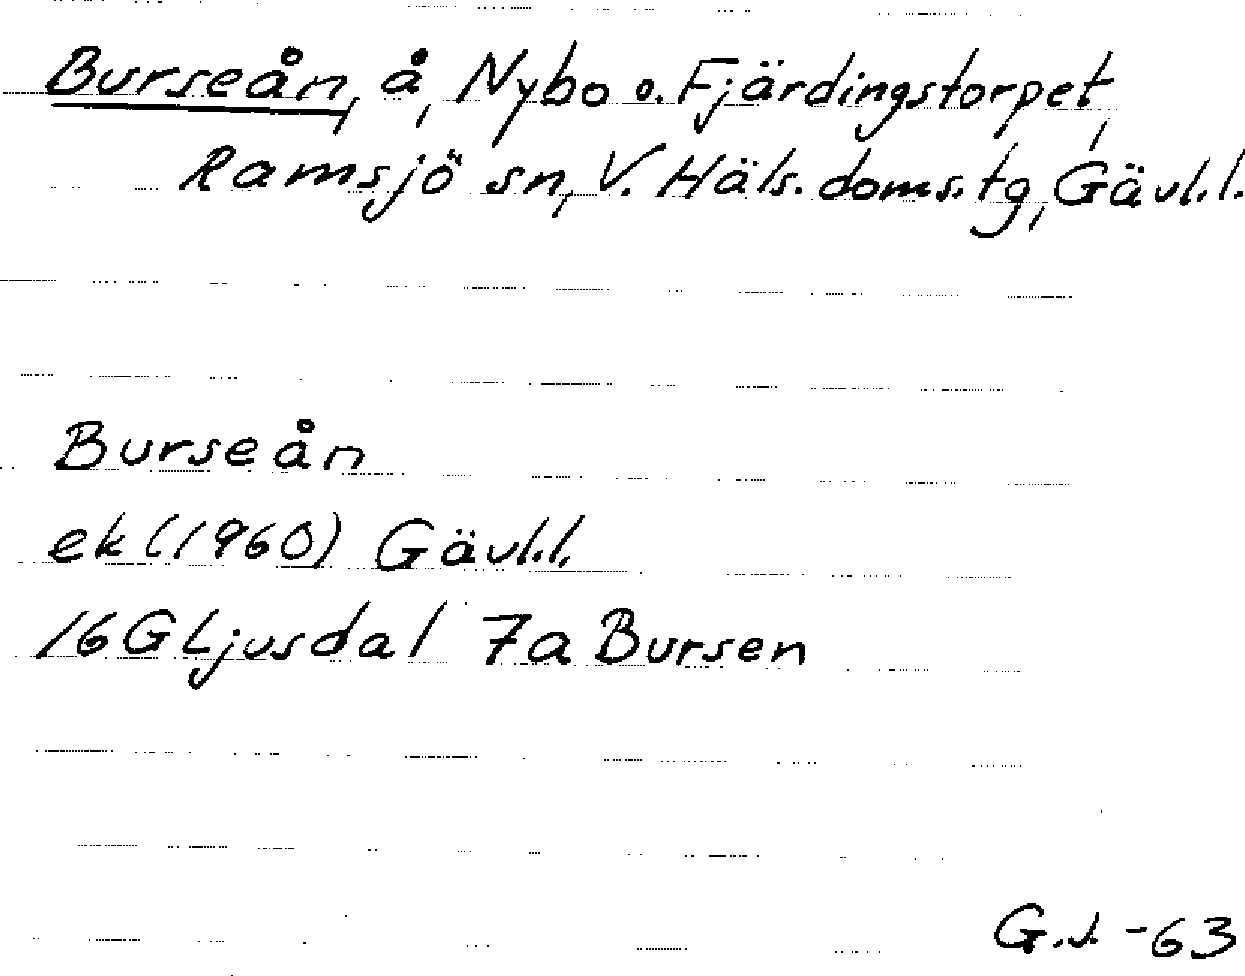 Burseån, å, Nybo o. Fjärdingstorpet,
Ramsjö sn, V. Häls. doms. tg, Gävl.l.
Burseån
ek (1960) Gävl.l.
16G Ljusdal 7a Bursen
G.J. -63